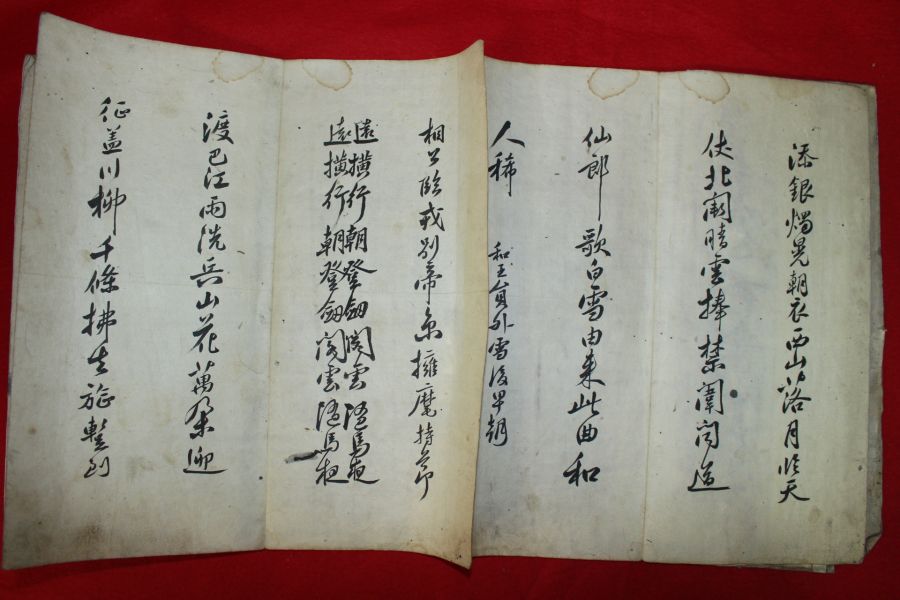 添銀燭晃朝衣西山落月臨天
仗北闕晴雲捧禁闈聞道
仙郎歌白雪由來此曲和
人稀 和王員外雪後早朝
相公臨戎別帝京擁麾持節
遠橫行朝登劒閣雲隨馬夜
遠橫行朝登劒閣雲隨馬夜
渡巴江雨洗兵山花萬朶迎
征盖川柳千條拂去旌暫到